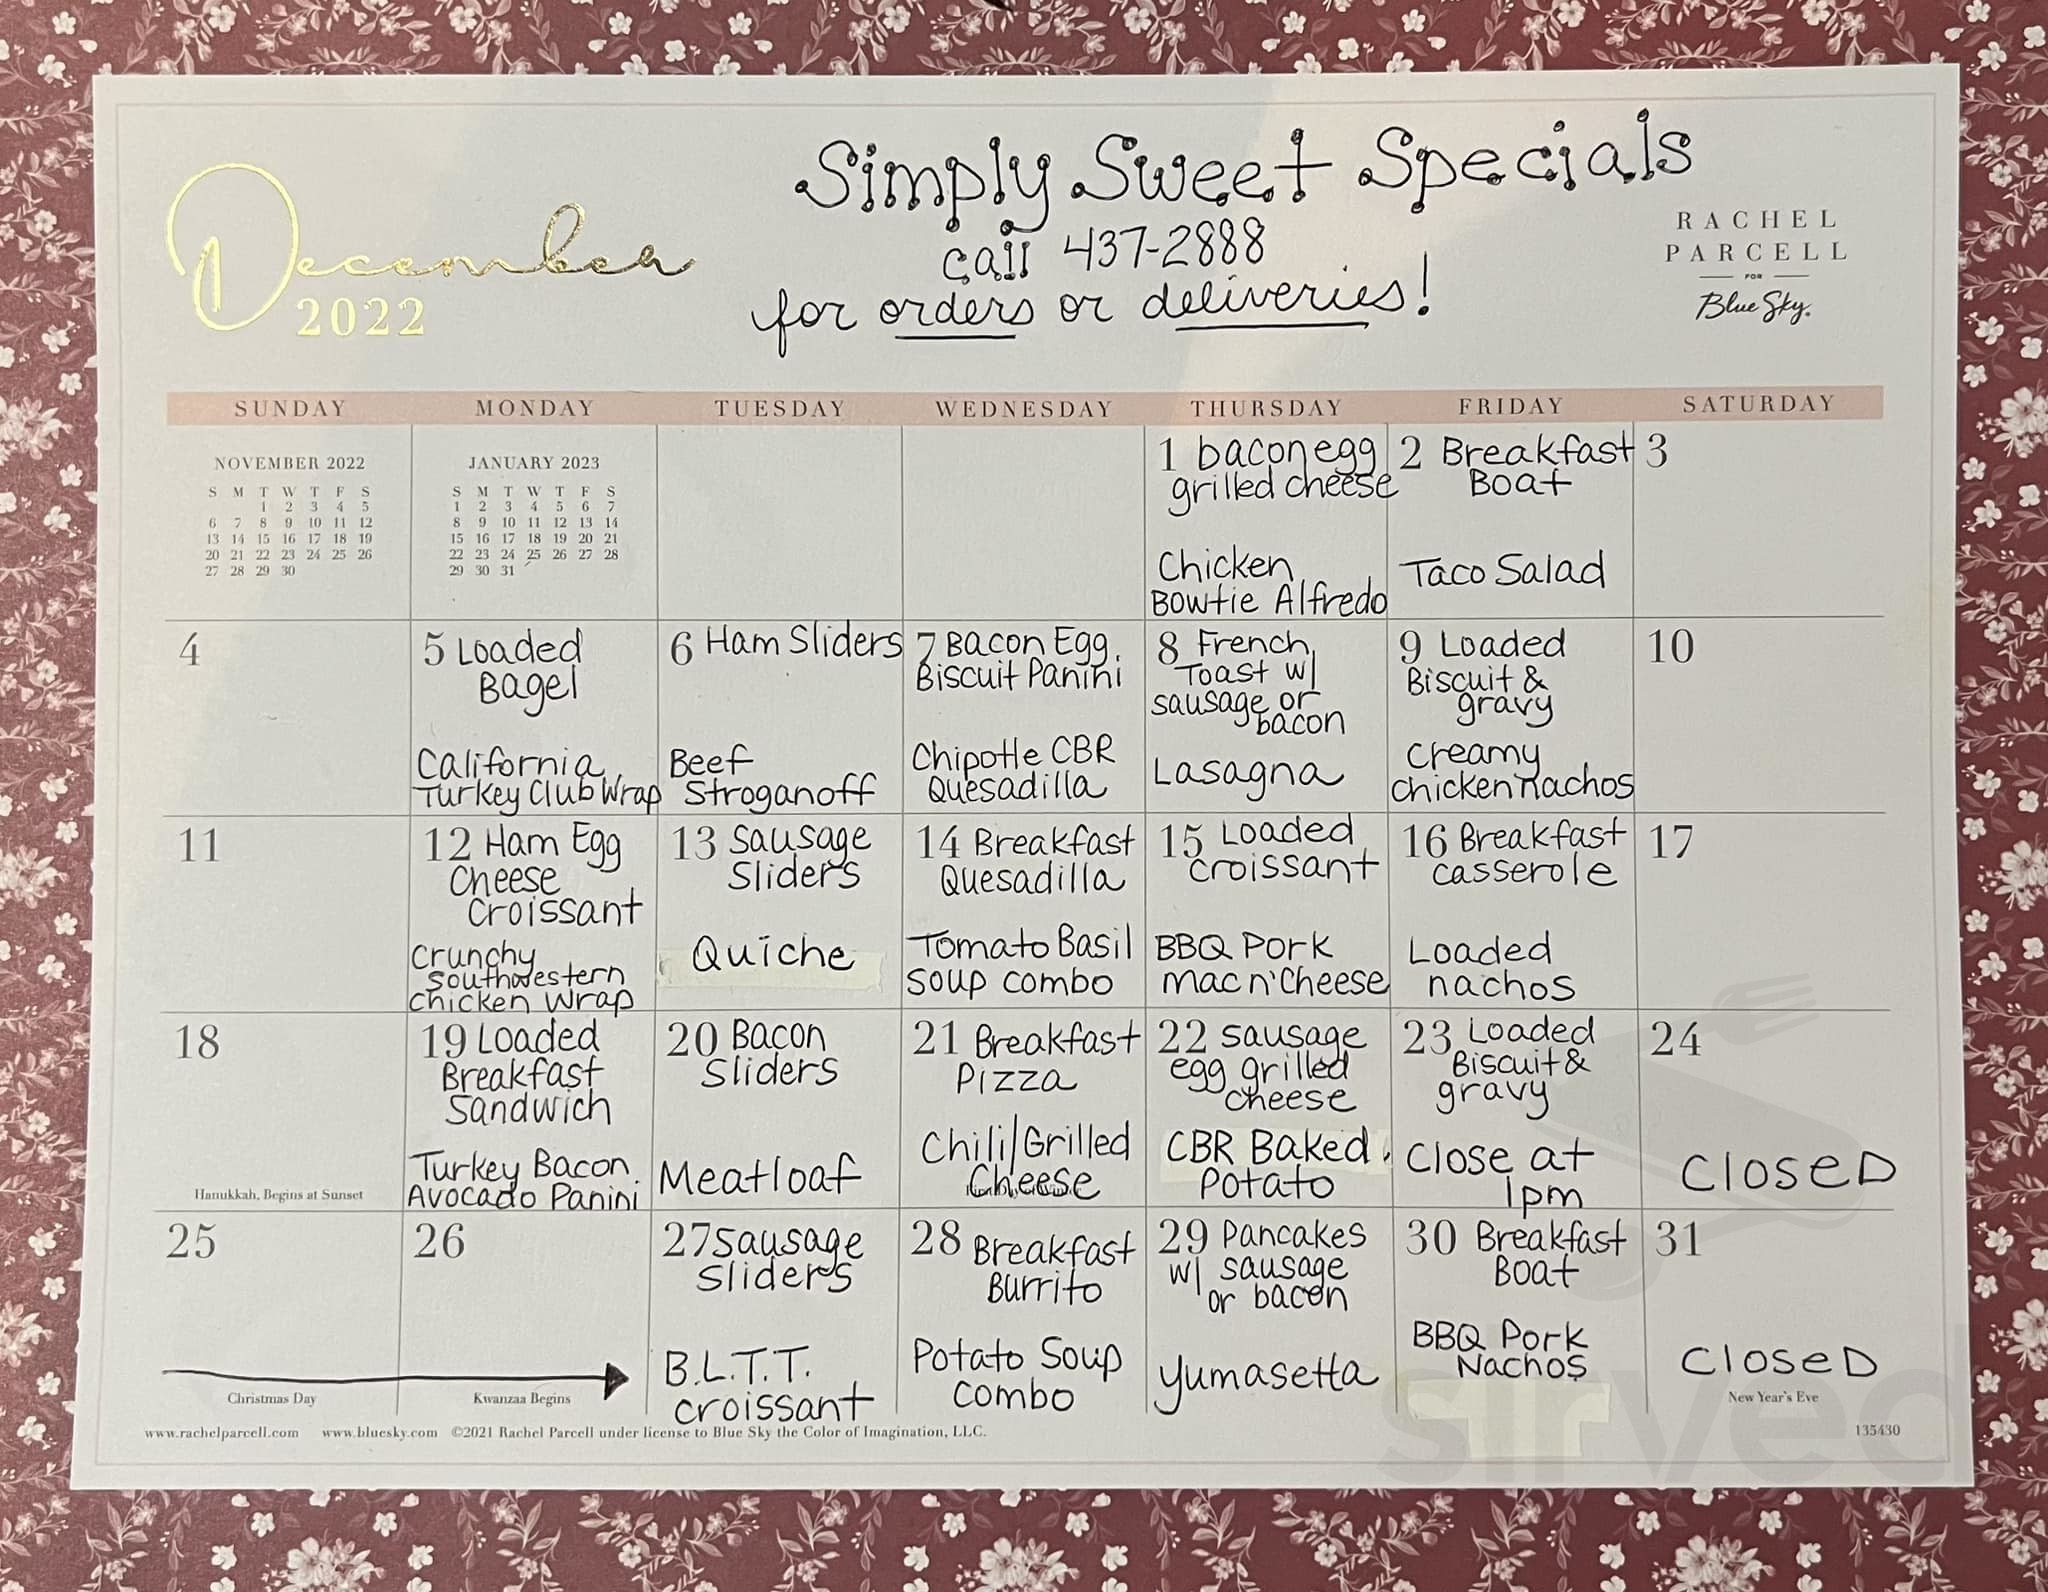 Simply Sweet Specials
call 437-2888
for orders or deliveries!
December
2022
RACHEL
PARCELL
FOR
Blue Sky.
SUNDAY MONDAY TUESDAY WEDNESDAY THURSDAY FRIDAY SATURDAY
NOVEMBER 2022
S M T W T F S
1 2 3 4 5
6 7 8 9 10 11 12
13 14 15 16 17 18 19
20 21 22 23 24 25 26
27 28 29 30
JANUARY 2023
S M T W T F S
1 2 3 4 5 6 7
8 9 10 11 12 13 14
15 16 17 18 19 20 21
22 23 24 25 26 27 28
29 30 31
1 bacon egg
grilled cheese
Chicken
Bowtie Alfredo
2 Breakfast
Boat
Taco Salad
3
4
5 Loaded
Bagel
California
Turkey Club Wrap
6 Ham Sliders
Beef
Stroganoff
7 Bacon Egg
Biscuit Panini
Chipotle CBR
Quesadilla
8 French
Toast w/
sausage or
bacon
Lasagna
9 Loaded
Biscuit &
gravy
Creamy
chicken nachos
10
11
12 Ham Egg
Cheese
Croissant
Crunchy
Southwestern
Chicken Wrap
13 Sausage
Sliders
Quiche
14 Breakfast
Quesadilla
Tomato Basil
Soup combo
15 Loaded
Croissant
BBQ Pork
mac n' Cheese
16 Breakfast
casserole
Loaded
nachos
17
18
Hanukkah, Begins at Sunset
19 Loaded
Breakfast
Sandwich
Turkey Bacon
Avocado Panini
20 Bacon
Sliders
Meatloaf
21 Breakfast
Pizza
Chili/Grilled
Cheese
22 Sausage
egg grilled
cheese
CBR Baked
Potato
23 Loaded
Biscuit &
gravy
Close at
1pm
24
Closed
25
Christmas Day
26
Kwanzaa Begins
27 Sausage
Sliders
B.L.T.T.
Croissant
28 Breakfast
Burrito
Potato Soup
Combo
29 Pancakes
w/ sausage
or bacon
Yumasetta
30 Breakfast
Boat
BBQ Pork
Nachos
31
Closed
New Year's Eve
www.rachelparcell.com www.bluesky.com ©2021 Rachel Parcell under license to Blue Sky the Color of Imagination, LLC.
135430
sirved